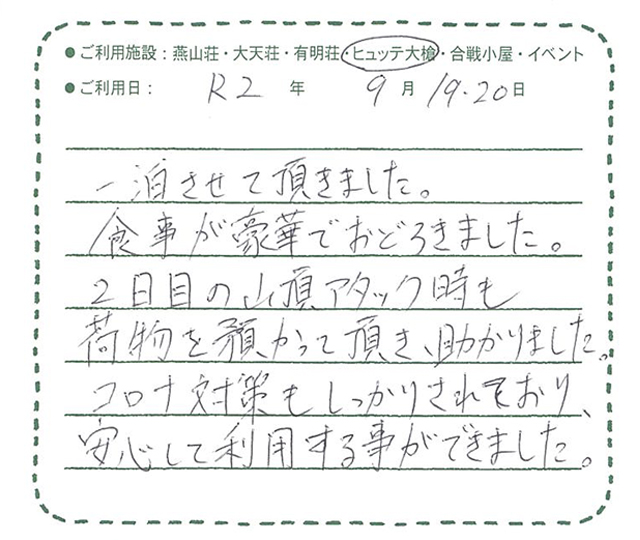 ●ご利用施設：燕山荘・大天荘・有明荘・ヒュッテ大槍・合戦小屋・イベント
●ご利用日： R2 年 9 月 19・20 日
一泊させて頂きました。
食事が豪華でおどろきました。
2日目の山頂アタック時も
荷物を預かって頂き、助かりました。
コロナ対策もしっかりされており、
安心して利用する事ができました。